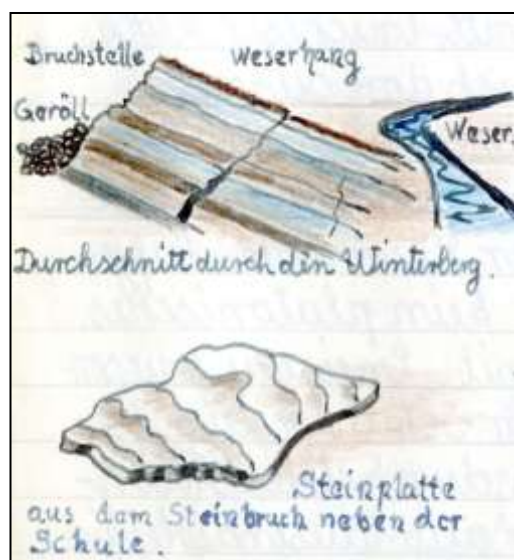 Bruchstelle Weserhang
Geröll
Weser
Durchschnitt durch den Winterberg.
Steinplatte
aus dem Steinbruch neben der
Schule.